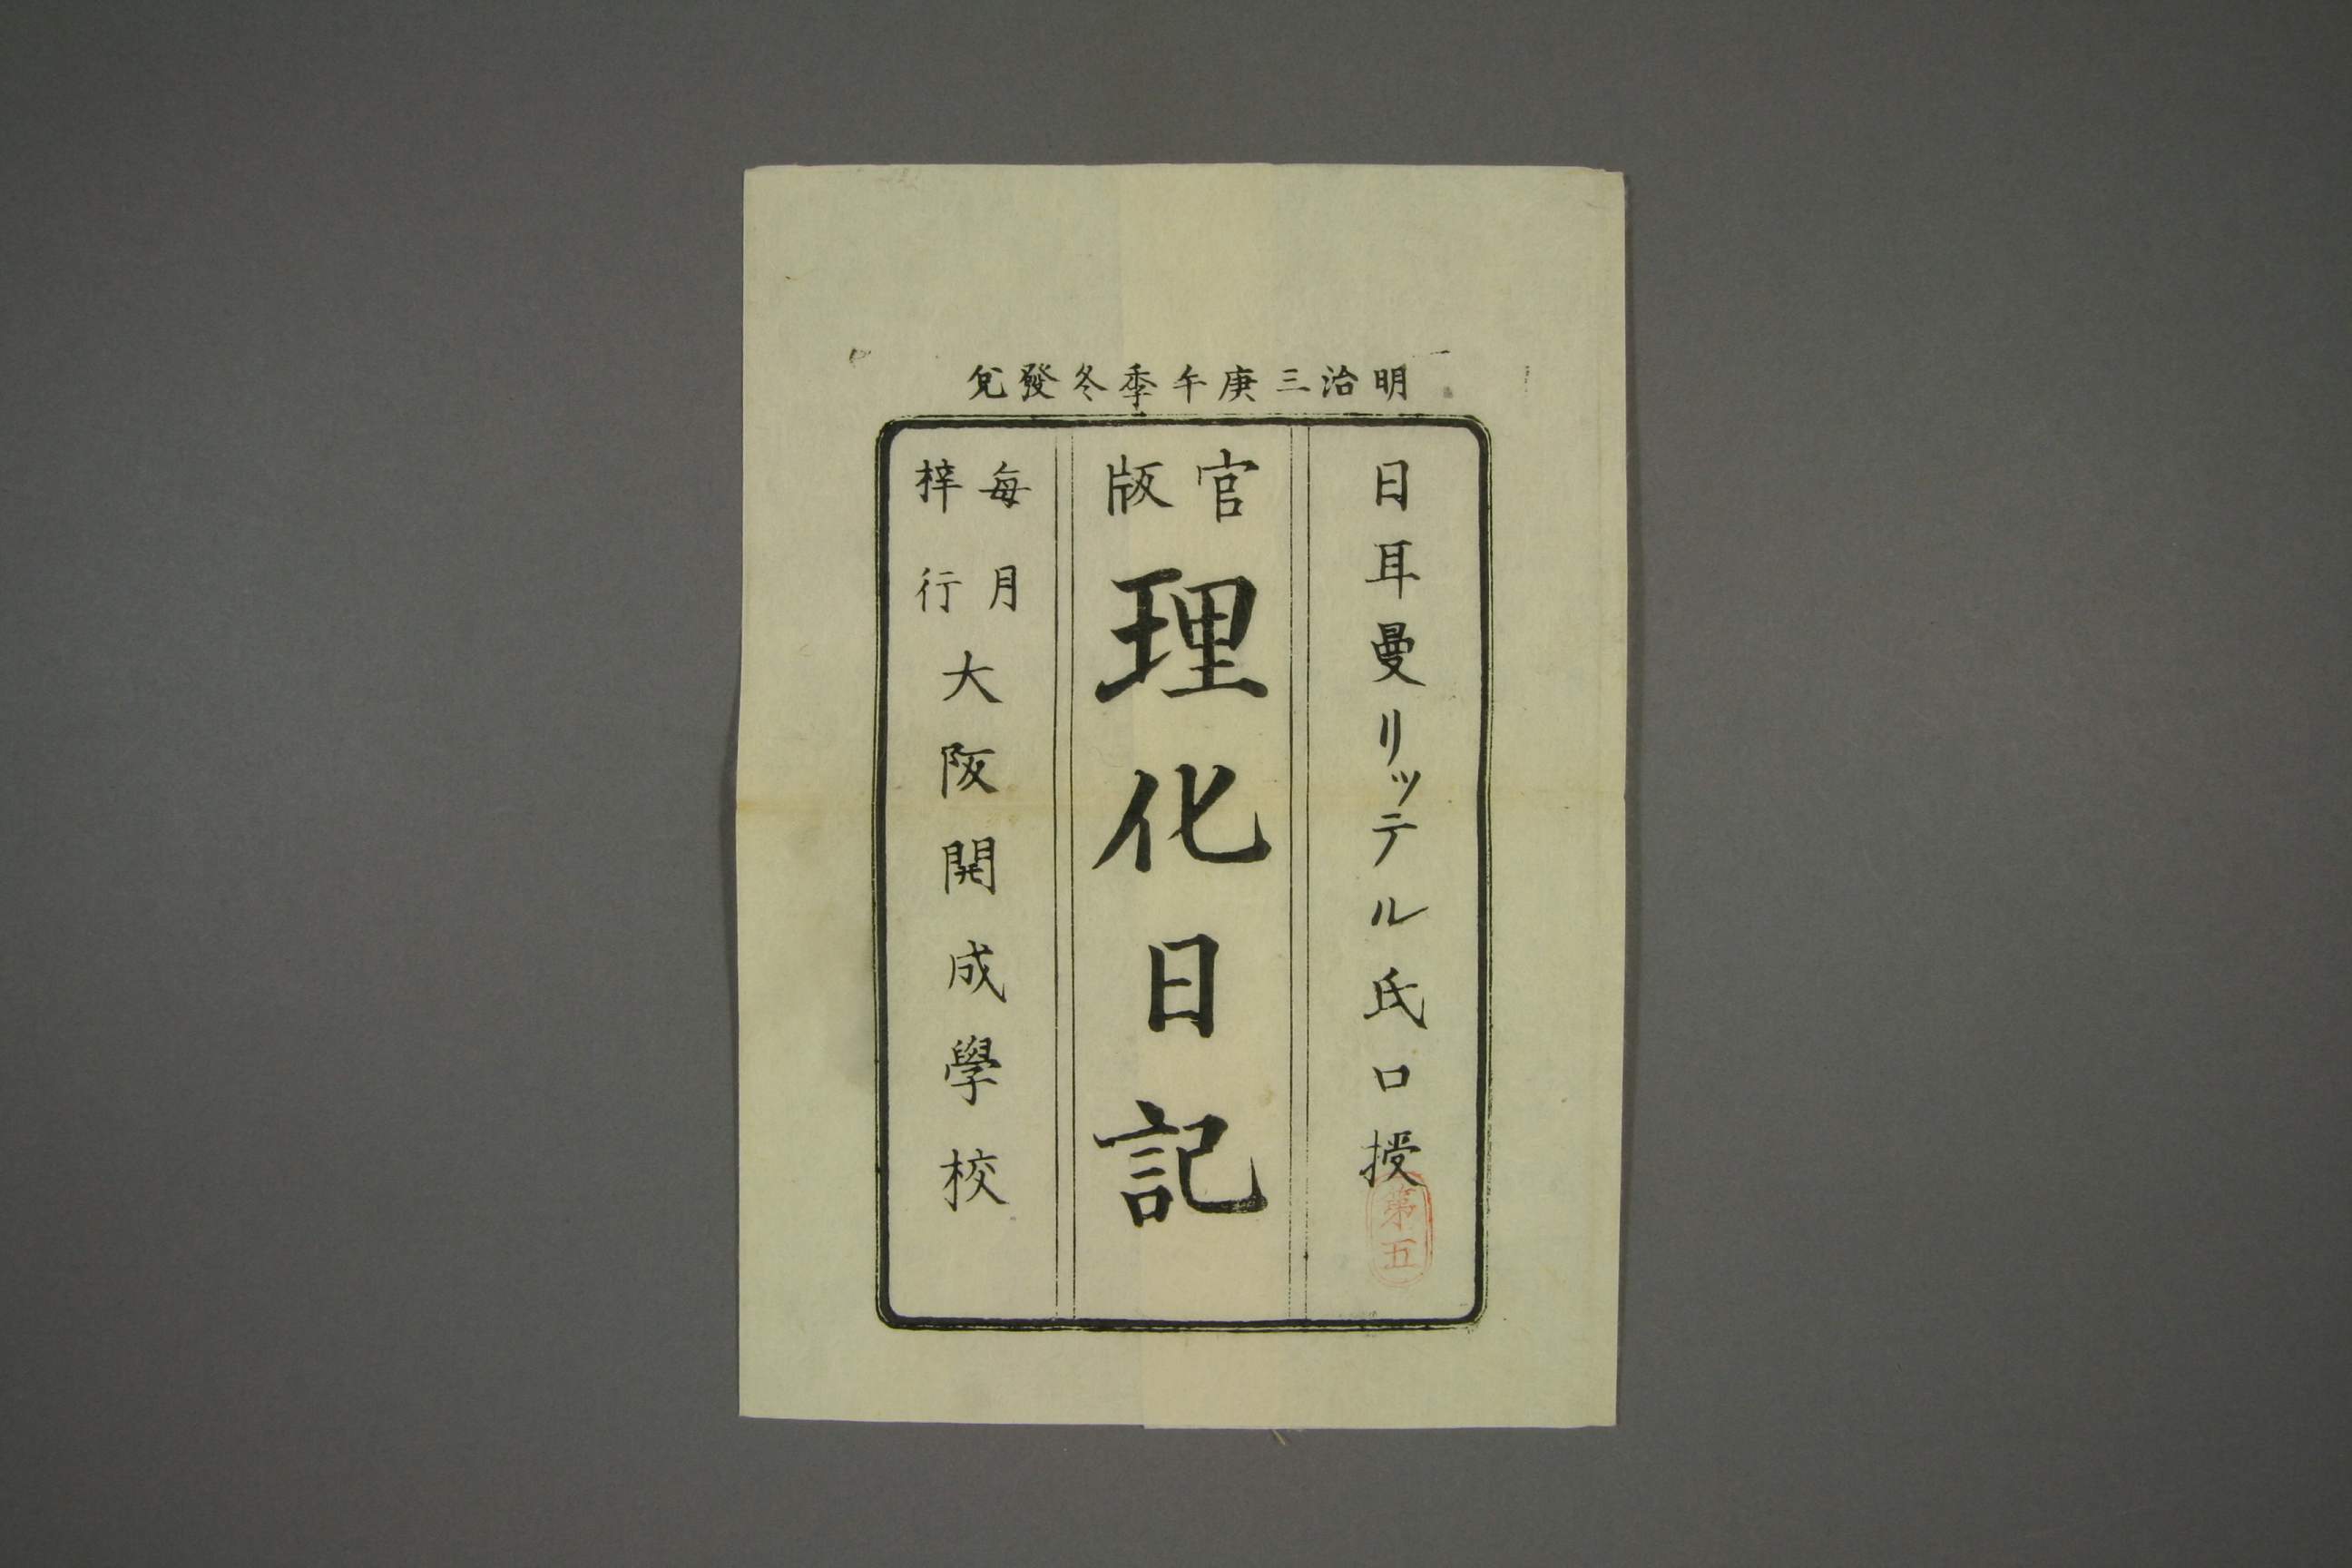 明治三庚午季冬發兌
日耳曼リッテル氏口授
第五
官版
理化日記
每月梓行
大阪開成學校